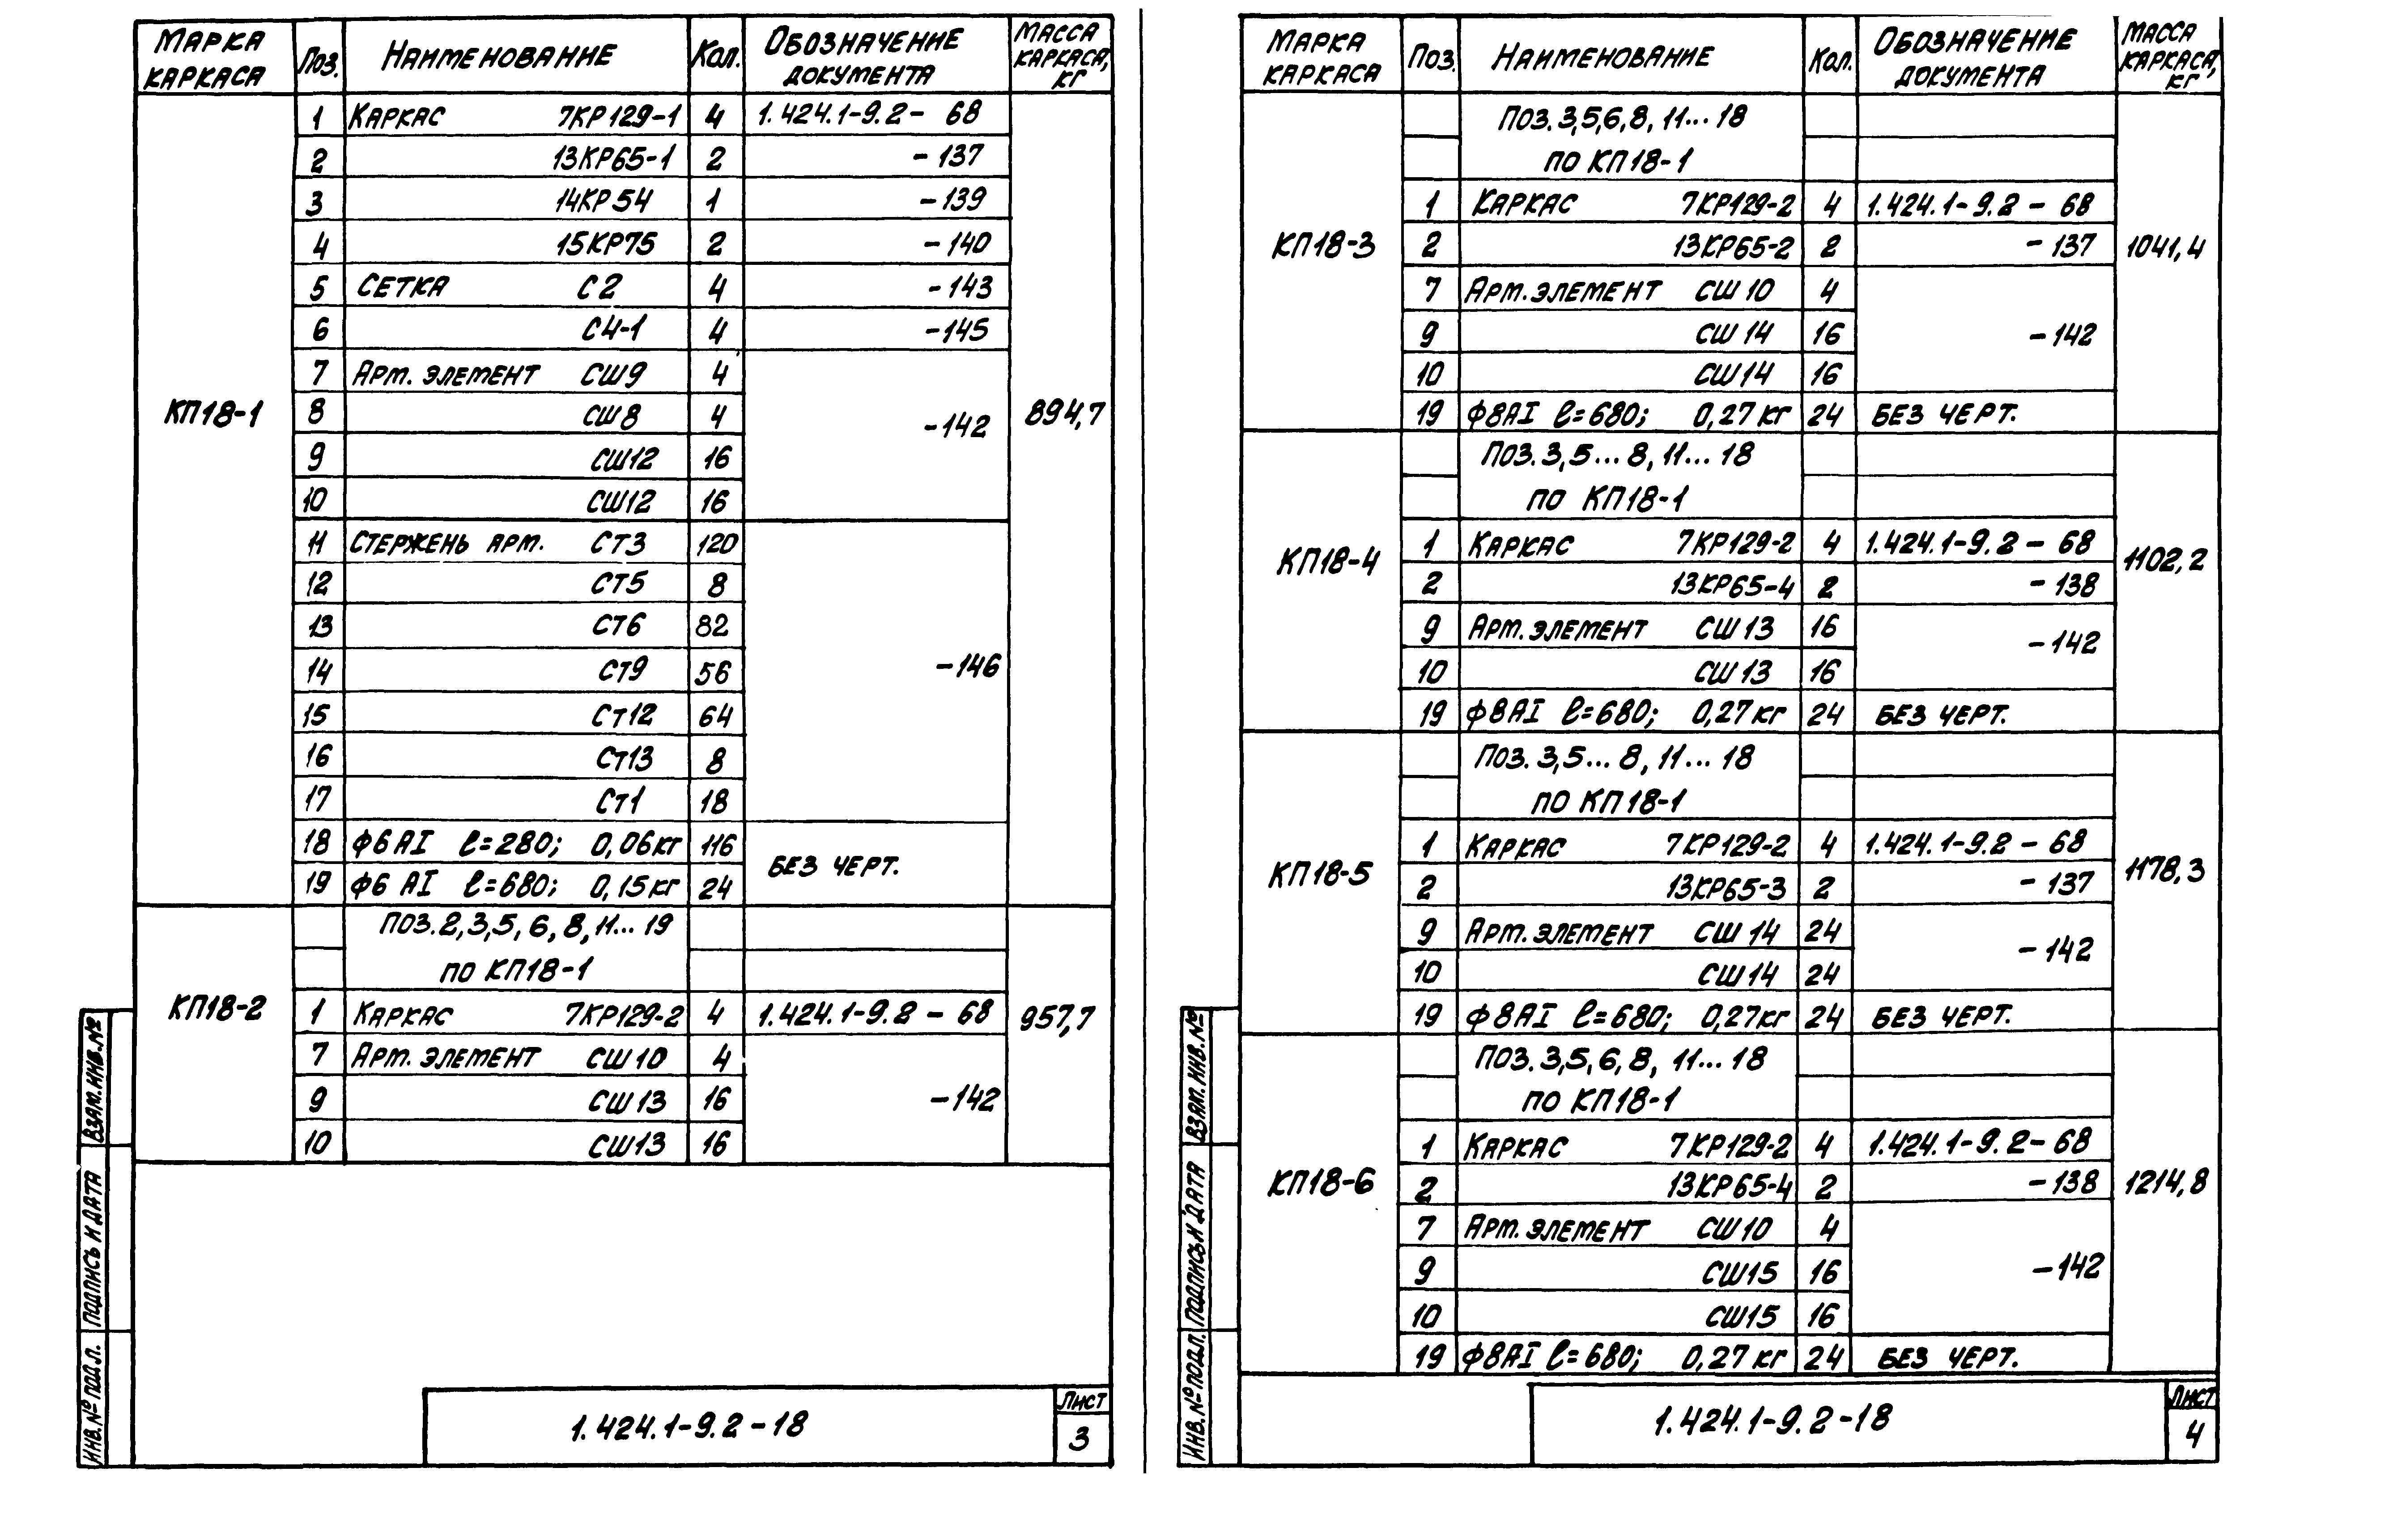 Марка каркаса Поз. Наименование Кол. Обозначение документа Масса каркаса, кг
КП18-1 894,7
1 Каркас 7КР129-1 4 1.424.1-9.2- 68
2 13КР65-1 2 -137
3 14КР54 1 -139
4 15КР75 2 -140
5 Сетка С2 4 -143
6 С4-1 4 -145
7 Арм. элемент СШ9 4 -142
8 СШ8 4
9 СШ12 16
10 СШ12 16
11 Стержень арм. Ст3 120 -146
12 Ст5 8
13 Ст6 82
14 Ст9 56
15 Ст12 64
16 Ст13 8
17 Ст1 18
18 Ф6АI ℓ=280; 0,06кг 116 Без черт.
19 Ф6 АI ℓ=680; 0,15кг 24
КП18-2 957,7
Поз. 2,3,5,6,8,11...19
по КП18-1
1 Каркас 7КР129-2 4 1.424.1-9.2 - 68
7 Арм. элемент СШ10 4 -142
9 СШ13 16
10 СШ13 16
Инв. № подл. Подпись и дата Взам. инв. №
1.424.1-9.2-18
Лист
3
Марка каркаса Поз. Наименование Кол. Обозначение документа Масса каркаса, кг
КП18-3 1041,4
Поз. 3,5,6,8,11...18
по КП18-1
1 Каркас 7КР129-2 4 1.424.1-9.2 - 68
2 13КР65-2 2 -137
7 Арм. элемент СШ10 4 -142
9 СШ14 16
10 СШ14 16
19 Ф8АI ℓ=680; 0,27кг 24 Без черт.
КП18-4 1102,2
Поз. 3,5...8,11...18
по КП18-1
1 Каркас 7КР129-2 4 1.424.1-9.2 - 68
2 13КР65-4 2 -138
9 Арм. элемент СШ13 16 -142
10 СШ13 16
19 Ф8АI ℓ=680; 0,27кг 24 Без черт.
КП18-5 1178,3
Поз. 3,5...8,11...18
по КП18-1
1 Каркас 7КР129-2 4 1.424.1-9.2 - 68
2 13КР65-3 2 -137
9 Арм. элемент СШ14 24 -142
10 СШ14 24
19 Ф8АI ℓ=680; 0,27кг 24 Без черт.
КП18-6 1214,8
Поз. 3,5,6,8,11...18
по КП18-1
1 Каркас 7КР129-2 4 1.424.1-9.2-68
2 13КР65-4 2 -138
7 Арм. элемент СШ10 4 -142
9 СШ15 16
10 СШ15 16
19 Ф8АI ℓ=680; 0,27кг 24 Без черт.
Инв. № подл. Подпись и дата Взам. инв. №
1.424.1-9.2-18
Лист
4